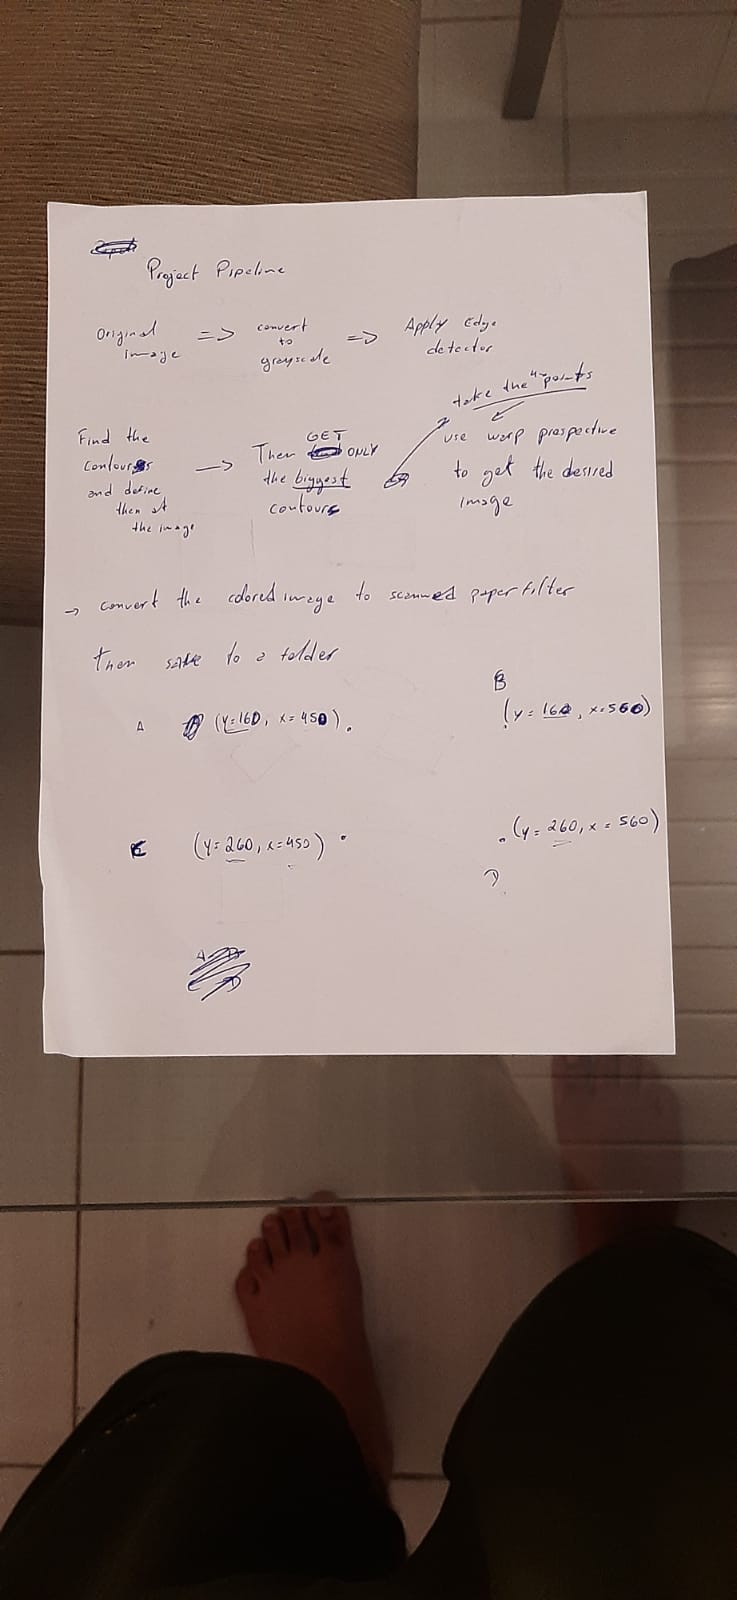 Project Pipeline
Original
image
=> convert
to
grayscale
=> Apply Edge
detector
Find the
contours
and define
then at
the image
→ Then GET ONLY
the biggest
contours
take the 4 points
use warp prespective
to get the desired
image
→ convert the colored image to scanned paper filter
then save to a folder
A (y=160, x=450).
B
(y=160, x=560)
C (y=260, x=450) .
. (y=260, x=560)
D